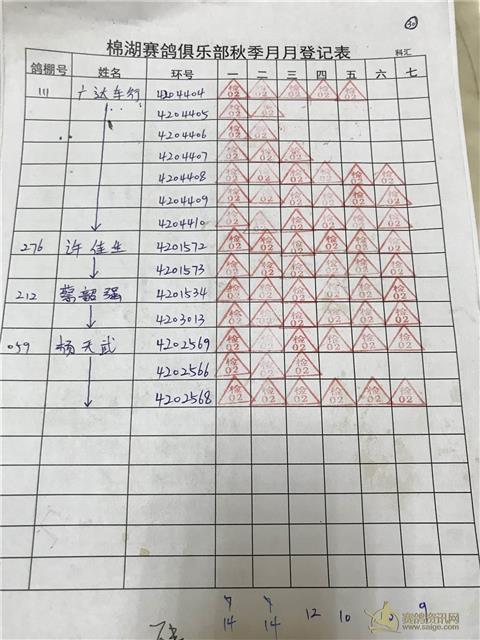 30
棉湖赛鸽俱乐部秋季月月登记表 科汇
鸽棚号 姓名 环号 一 二 三 四 五 六 七
111 广达车行 4204404 检02 检02 检02 检02 检02
4204405 检02 检02
4204406 检02 检02
4204407 检02 检02 检02
4204408 检02 检02 检02 检02 检02 检02
4204409 检02 检02 检02 检02 检02 检02
4204410 检02 检02 检02 检02 检02 检02
276 许佳生 4201572 检02 检02 检02 检02 检02 检02
4201573 检02 检02 检02 检02 检02 检02
212 蔡韶强 4201534 检02 检02 检02 检02 检02 检02
4203013 检02 检02 检02 检02 检02 检02
059 杨天武 4202569 检02 检02 检02 检02 检02 检02
4202566 检02 检02 检02
4202568 检02 检02 检02 检02 检02 检02
14 14 12 10 10 9
赛鸽资讯网
www.saige.com